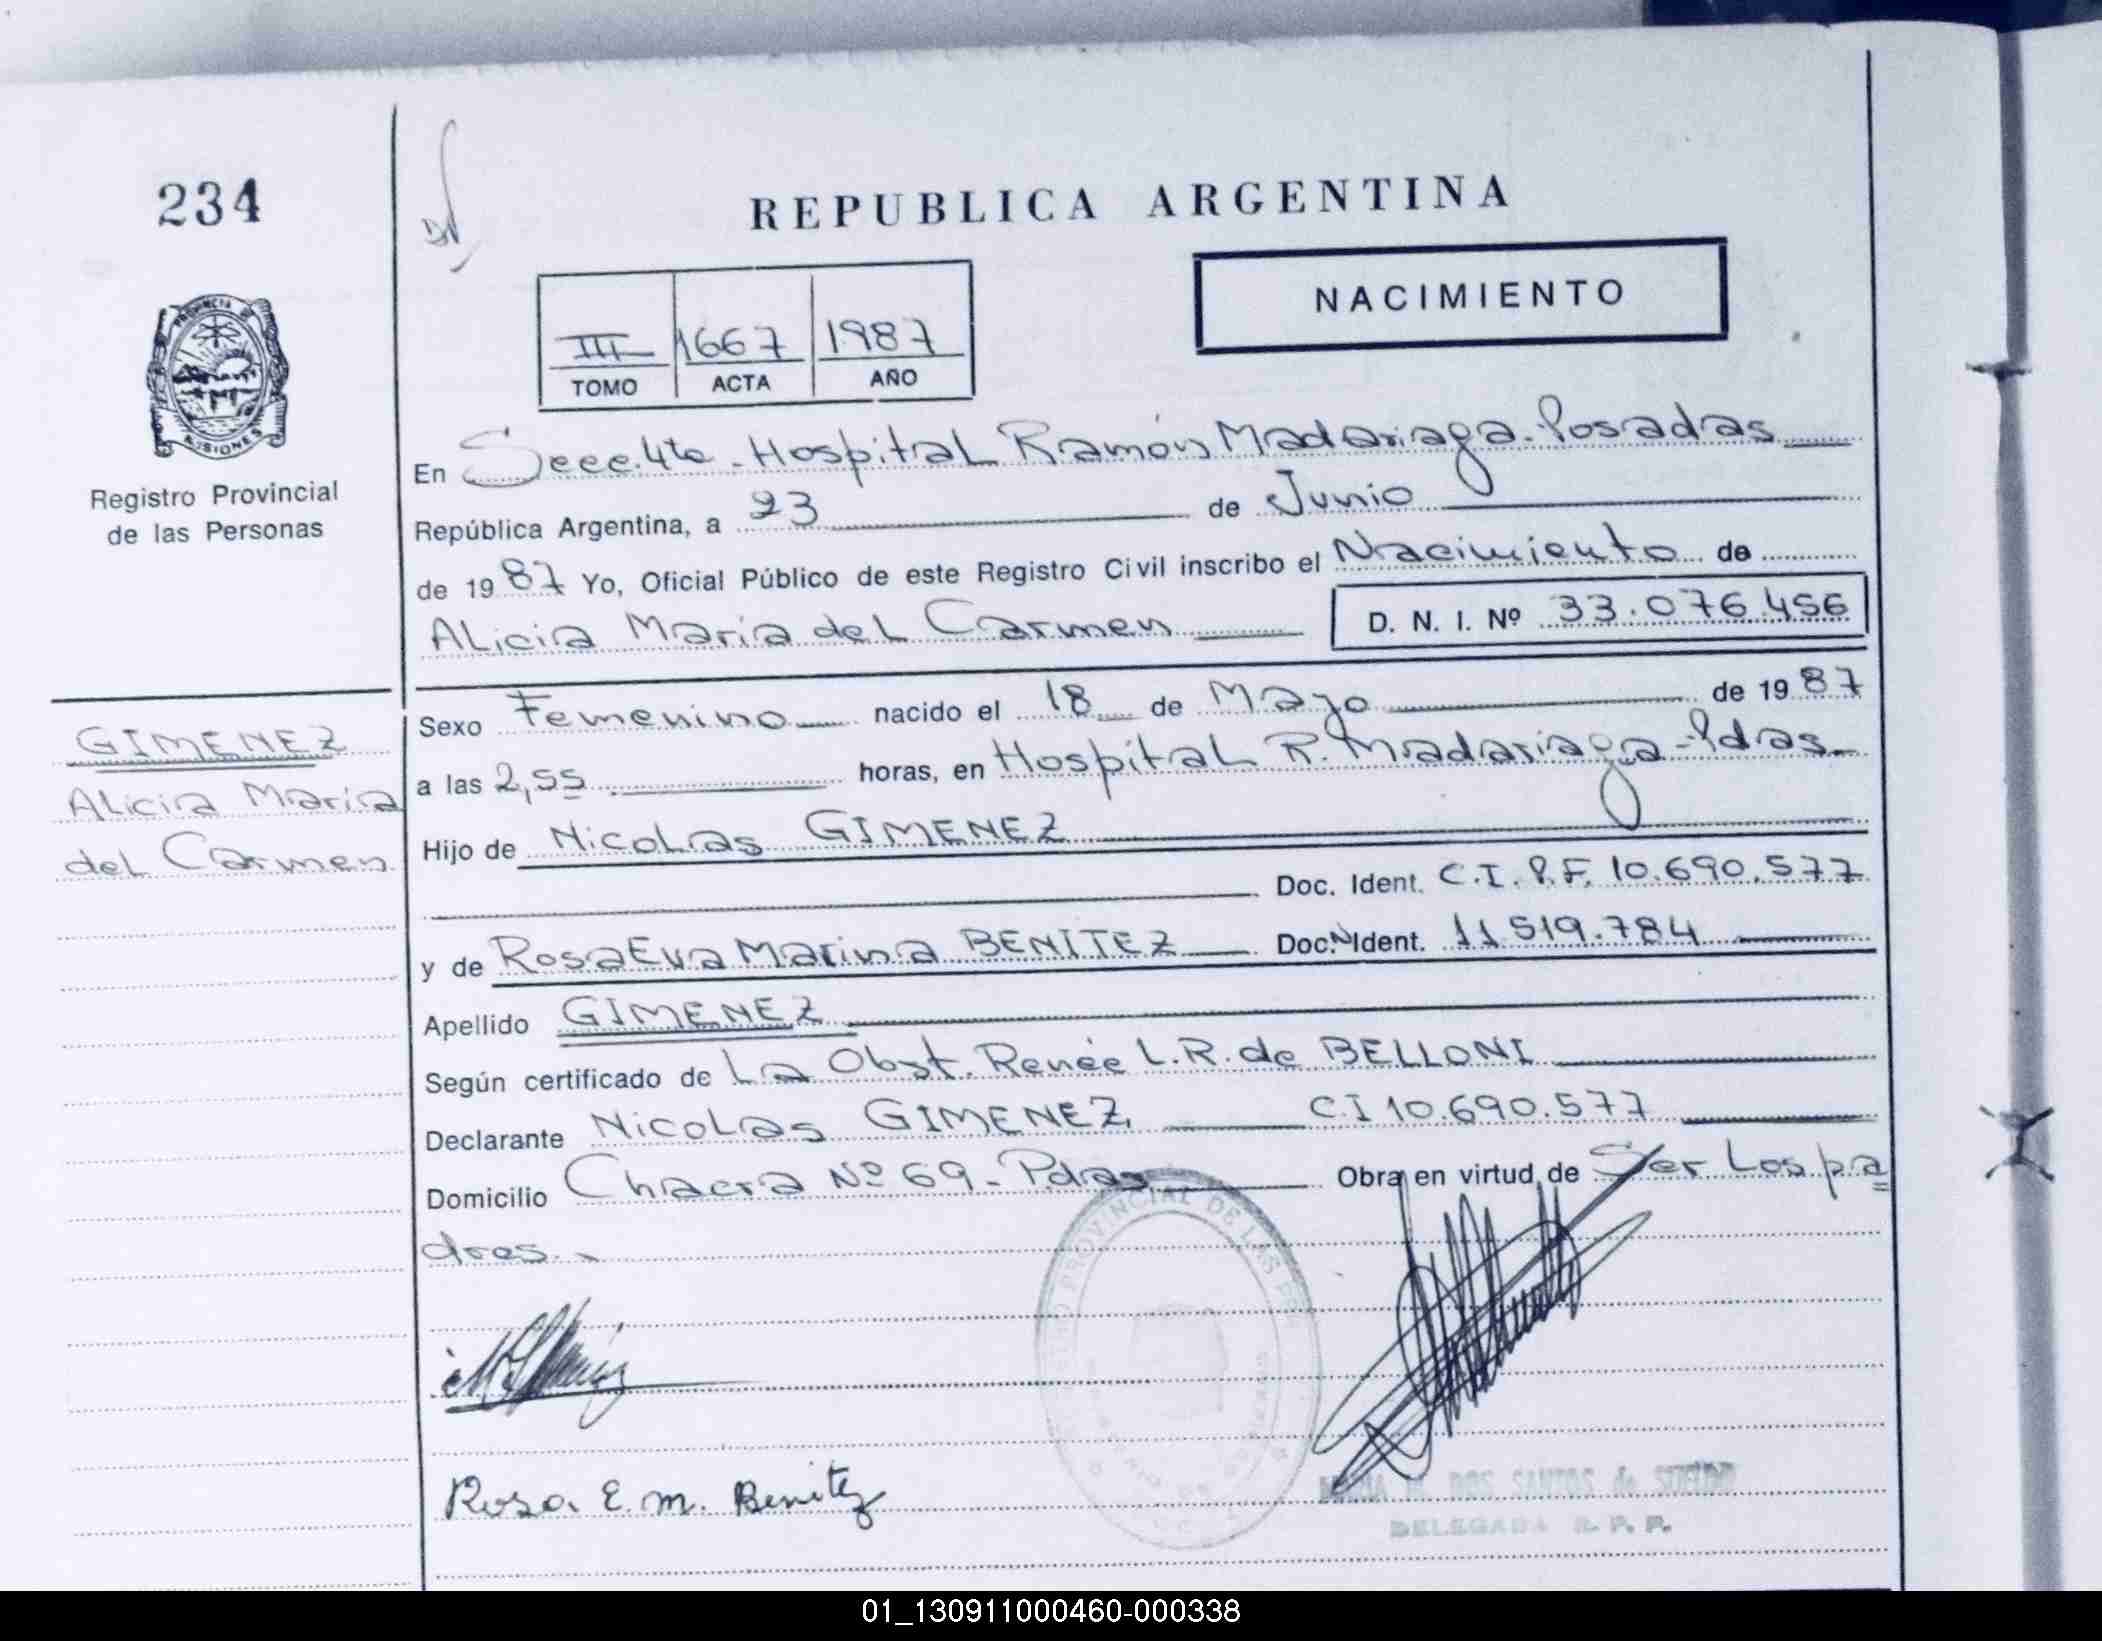 234
REPUBLICA ARGENTINA
NACIMIENTO
III 1667 1987
TOMO ACTA AÑO
PROVINCIA DE
MISIONES
Registro Provincial
de las Personas
En Secc.4ta. Hospital Ramón Madariaga. Posadas
República Argentina, a 23 de Junio
de 1987 Yo, Oficial Público de este Registro Civil inscribo el Nacimiento de
Alicia María del Carmen D. N. I. Nº 33.076.456
GIMENEZ
Alicia María
del Carmen
Sexo Femenino nacido el 18 de Mayo de 1987
a las 2,55 horas, en Hospital R. Madariaga - Pdas.
Hijo de Nicolas GIMENEZ
Doc. Ident. C.I.P.F. 10.690.577
y de Rosa Eva Marina BENITEZ Doc. Ident. 11 519.784
Apellido GIMENEZ
Según certificado de La Obst. Renée L.R. de BELLONI
Declarante Nicolas GIMENEZ C.I 10.690.577
Domicilio Chacra Nº 69 - Pdas Obra en virtud de Ser Los pa
dres.
PROVINCIAL DE LAS
Rosa. E. m. Benitez
DOS SANTOS de SUELDO
DELEGADA R. P. P.
01_130911000460-000338